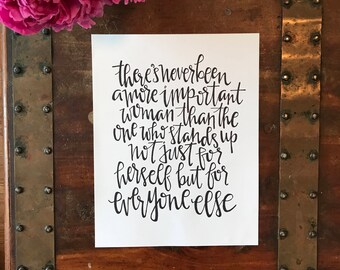 there's never been
a more important
woman than the
one who stands up
not just for
herself but for
everyone else